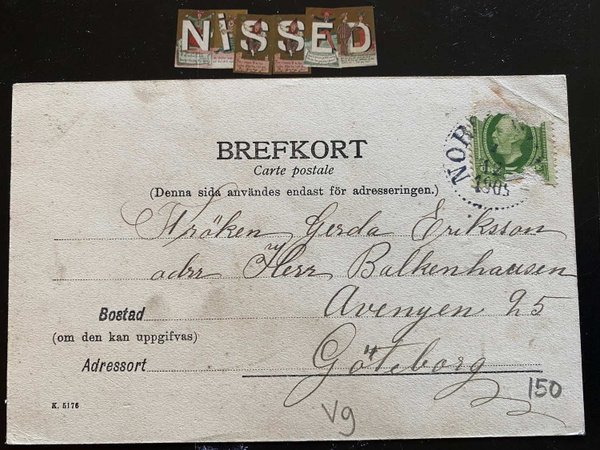 NiSSED
BREFKORT
Carte postale
(Denna sida användes endast för adresseringen.)
NOR
12
1905
Fröken Gerda Eriksson
adrr Herr Balkenhausen
Bostad Avenyen 25
(om den kan uppgifvas)
Adressort Göteborg
K. 5176
Vg
150